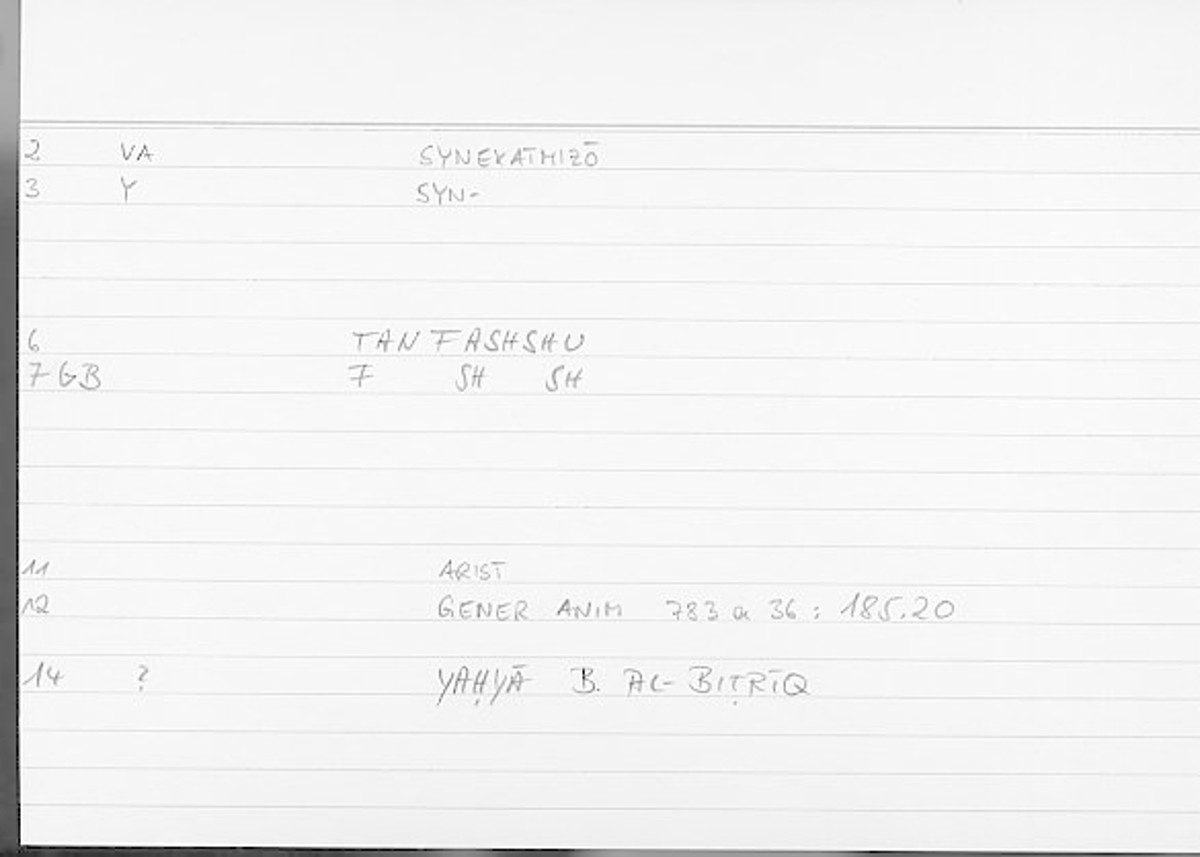 2 VA SYNEKATMIZŌ
3 Y SYN-
6 TANFASHSHU
7 GB F SH SH
11 ARIST
12 GENER ANIM 783 a 36 : 185.20
14 ? YAḤYĀ B. AL-BIṬRĪQ